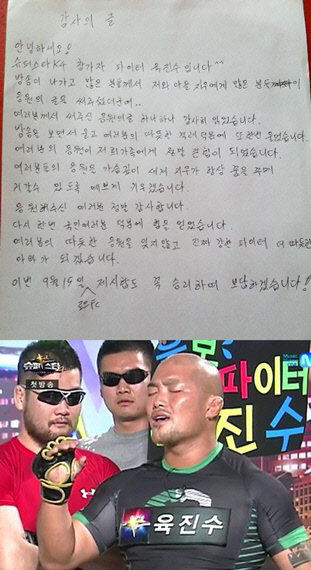 감사의 글
안녕하세요!
슈퍼스타K4 참가자 파이터 육진수 입니다^^
방송이 나가고 많은 분들께서 저와 아들 지우에게 많은 분들
응원의 글을 써주셨더군여..
여러분께서 써주신 응원의글 하나하나 감사히 읽었습니다.
방송을 보면서 울고 여러분의 따뜻한 격려덕분에 또한번 울었습니다.
여러분의 응원이 저희가족에게 정말 큰힘이 되었습니다.
여러분들의 응원은 가슴깊이 새겨 지우가 항상 꿈을 꾸며
커갈수 있도록 예쁘게 키우겠습니다.
응원해주신 여러분 정말 감사합니다.
다시 한번 국민여러분 덕분에 힘을 얻었습니다.
여러분의 따뜻한 응원을 잊지않고 진짜 강한 파이터 더 따뜻한
아빠가 되겠습니다.
이번 9월 15일 제시합도 꼭 승리하여 보답하겠습니다!
로드FC
슈퍼스타
첫방송
파이터
진수
육진수